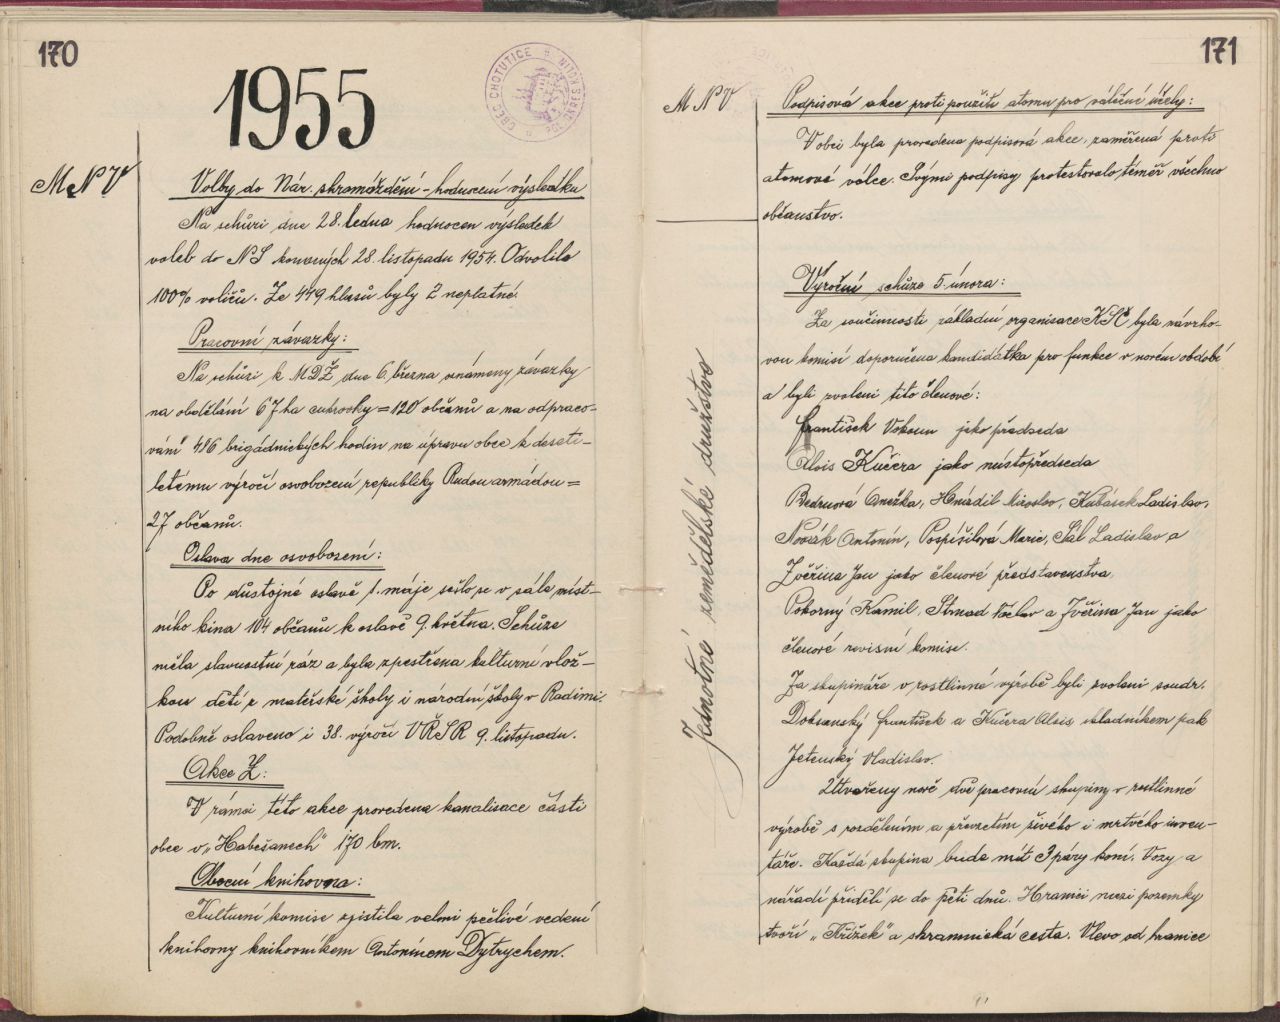 170
1955
OBEC CHOTUTICE
M N V
Volby do Nár. shromáždění - hodnocení výsledku
Na schůzi dne 28. ledna hodnocen výsledek
voleb do NS konaných 28. listopadu 1954. Odvolilo
100% voličů. Ze 449 hlasů byly 2 neplatné.
Pracovní závazky:
Na schůzi k MDŽ dne 6. března oznámeny závazky
na obdělání 67 ha cukrovky = 120 občanů a na odpraco-
vání 486 brigádnických hodin na úpravu obce k deseti-
letému výročí osvobození republiky Rudou armádou =
27 občanů.
Oslava dne osvobození:
Po důstojné oslavě 1. máje sešlo se v sále míst-
ního kina 104 občanů k oslavě 9. května. Schůze
měla slavnostní ráz a byla zpestřena kulturní vlož-
kou dětí z mateřské školy i národní školy v Radimi.
Podobně oslaveno i 38. výročí VŘSR 9. listopadu.
Akce Z:
V rámci této akce provedena kanalisace části
obce v „Habešanech" 170 bm.
Obecní knihovna:
Kulturní komise zjistila velmi pečlivé vedení
knihovny knihovníkem Antonínem Dytrychem.
171
M N V
Podpisová akce proti použití atomu pro válečné účely:
V obci byla provedena podpisová akce, zaměřená proti
atomové válce. Svými podpisy protestovalo téměř všechno
občanstvo.
Jednotné zemědělské družstvo
Výroční schůze 5. února:
Za součinnosti základní organisace KSČ byla návrho-
vou komisí doporučena kandidátka pro funkce v novém období
a byli zvoleni tito členové:
František Vokoun jako předseda
Alois Kučera jako místopředseda
Bedrnová Anežka, Hnádil Miroslav, Kubásek Ladislav,
Novák Antonín, Pospíšilová Marie, Sál Ladislav a
Zvěřina Jan jako členové představenstva,
Pokorný Kamil, Strnad Václav a Zvěřina Jan jako
členové revisní komise.
Za skupináře v rostlinné výrobě byli zvoleni soudr.
Dobranský František a Kučera Alois, skladníkem pak
Jetenský Vladislav.
Utvořeny nově dvě pracovní skupiny v rostlinné
výrobě s rozdělením a převzetím živého i mrtvého inven-
táře. Každá skupina bude mít 3 páry koní. Vozy a
nářadí přidělí se do pěti dnů. Hranici mezi pozemky
tvoří „Křížek" a skramnická cesta. Vlevo od hranice